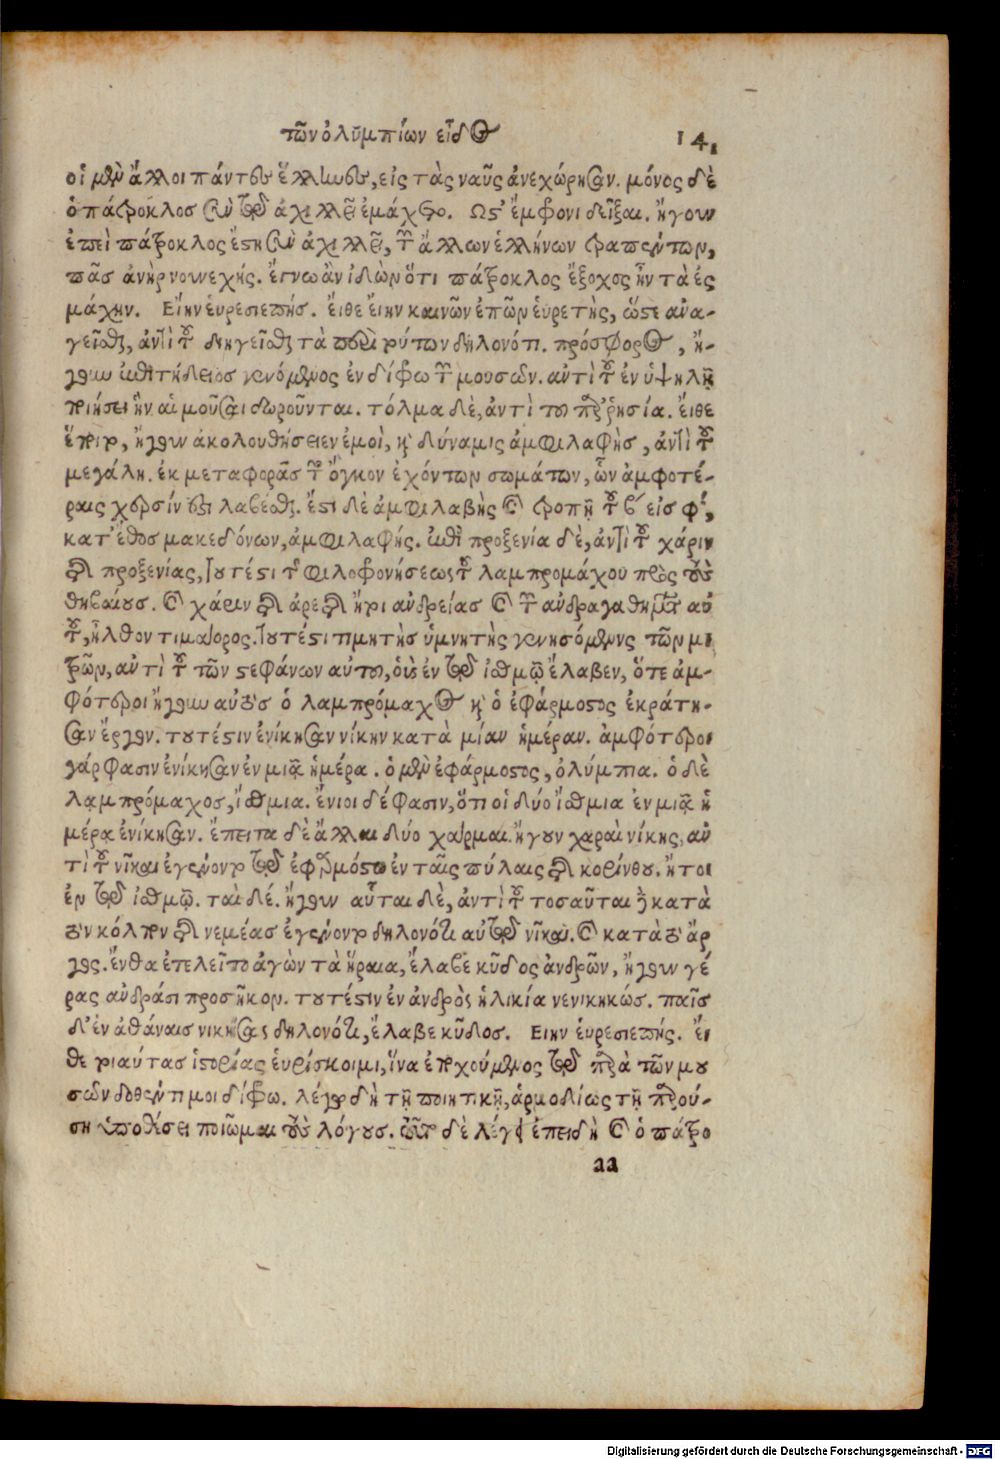 τῶν ὀλυμπίων εἶδος 141
οἱ μὲν ἄλλοι πάντες ἕλληνες, εἰς τὰς ναῦς ἀνεχώρησαν. μόνος δὲ
ὁ πάτροκλος σὺν τῷ ἀχιλλεῖ ἐμάχετο. Ως τ' ἔμφρονι δεῖξαι. ἤγουν
ἐπεὶ πάτροκλος ἔστη σὺν ἀχιλλεῖ, τῶν ἄλλων ἑλλήνων τραπέντων,
πᾶς ἀνὴρ νουνεχής. ἔγνω ἂν ἰδὼν ὅτι πάτροκλος ἔξοχος ἦν τὰ ἐς
μάχην. Εἴην εὑρεσιεπής. εἴθε εἴην καινῶν ἐπῶν εὑρετής, ὥστε ἀνα-
γεῖσθαι, ἀντὶ τοῦ διηγεῖσθαι τὰ περὶ τούτων δηλονότι. πρόσφορος, ἤ-
γουν ἐπιτήδειος γενόμενος ἐν δίφρω τῶν μουσῶν. ἀντὶ τοῦ ἐν ὑψηλῇ
ποιήσει ἣν αἱ μοῦσαι δωροῦνται. τόλμα δὲ, ἀντὶ τοῦ παρρησία. εἴθε
ἕποιτο, ἤγουν ἀκολουθήσειεν ἐμοὶ, καὶ δύναμις ἀμφιλαφὴς, ἀντὶ τοῦ
μεγάλη. ἐκ μεταφορᾶς τῶν ὄγκον ἐχόντων σωμάτων, ὧν ἀμφοτέ-
ραις χερσίν ἐστι λαβέσθαι. ἔστι δὲ ἀμφιλαβὴς καὶ τροπῇ τοῦ β εἰς φ,
κατ' ἔθος μακεδόνων, ἀμφιλαφής. ἐπὶ προξενία δὲ, ἀντὶ τοῦ χάριν
τῆς προξενίας, τουτέστι τῆς φιλοφρονήσεως τοῦ λαμπρομάχου πρὸς τοὺς
θηβαίους. καὶ χάριν τῆς ἀρετῆς ἤτοι ἀνδρείας καὶ τῶν ἀνδραγαθημάτων αὐ
τοῦ, ἦλθον τιμάορος. τουτέστι τιμητὴς ὑμνητὴς γενησόμενος τῶν μι
τρῶν, ἀντὶ τοῦ τῶν στεφάνων αὐτοῦ, οὓς ἐν τῷ ἰσθμῷ ἔλαβεν, ὅτε ἀμ-
φότεροι ἤγουν αὐτός ὁ λαμπρόμαχος καὶ ὁ ἐφάρμοστος ἐκράτη-
σαν ἔργον. τουτέστιν ἐνίκησαν νίκην κατὰ μίαν ἡμέραν. ἀμφότεροι
γάρ φασιν ἐνίκησαν ἐν μιᾷ ἡμέρα. ὁ μὲν ἐφάρμοστος, ὀλύμπια. ὁ δὲ
λαμπρόμαχος, ἴσθμια. ἔνιοι δέ φασιν, ὅτι οἱ δύο ἴσθμια ἐν μιᾷ ἡ
μέρᾳ ἐνίκησαν. ἔπειτα δὲ ἄλλαι δύο χάρμαι. ἤγουν χαραὶ νίκης, ἀν
τὶ τοῦ νῖκαι ἐγένοντο τῷ ἐφαρμόστω ἐν ταῖς πύλαις τῆς κορίνθου. ἤτοι
ἐν τῷ ἰσθμῷ. ταὶ δέ. ἤγουν αὗται δὲ, ἀντὶ τοῦ τοσαῦται καὶ κατὰ
τὸν κόλπον τῆς νεμέας ἐγένοντο δηλονότι αὐτῷ νῖκαι. καὶ κατὰ τὸ ἄρ
γος. ἔνθα ἐτελεῖτο ἀγὼν τὰ ἥραια, ἔλαβε κῦδος ἀνδρῶν, ἤγουν γέ
ρας ἀνδράσι προσῆκον. τουτέστιν ἐν ἀνδρὸς ἡλικία νενικηκώς. παῖς
δ' ἐν ἀθάναις νικήσας δηλονότι, ἔλαβε κῦδος. Ειην εὑρεσιεπής. εἴ
θε τοιαύτας ἱστορίας εὑρίσκοιμι, ἵνα ἐποχούμενος τῷ παρὰ τῶν μου
σῶν δοθέντι μοι δίφρω. λέγω δὴ τῇ ποιητικῇ, ἁρμοδίως τῇ παρού-
σῃ ὑποθέσει ποιῶμαι τοὺς λόγους. ταῦτα δὲ λέγει ἐπειδὴ καὶ ὁ πάτρο
aa
Digitalisierung gefördert durch die Deutsche Forschungsgemeinschaft - DFG